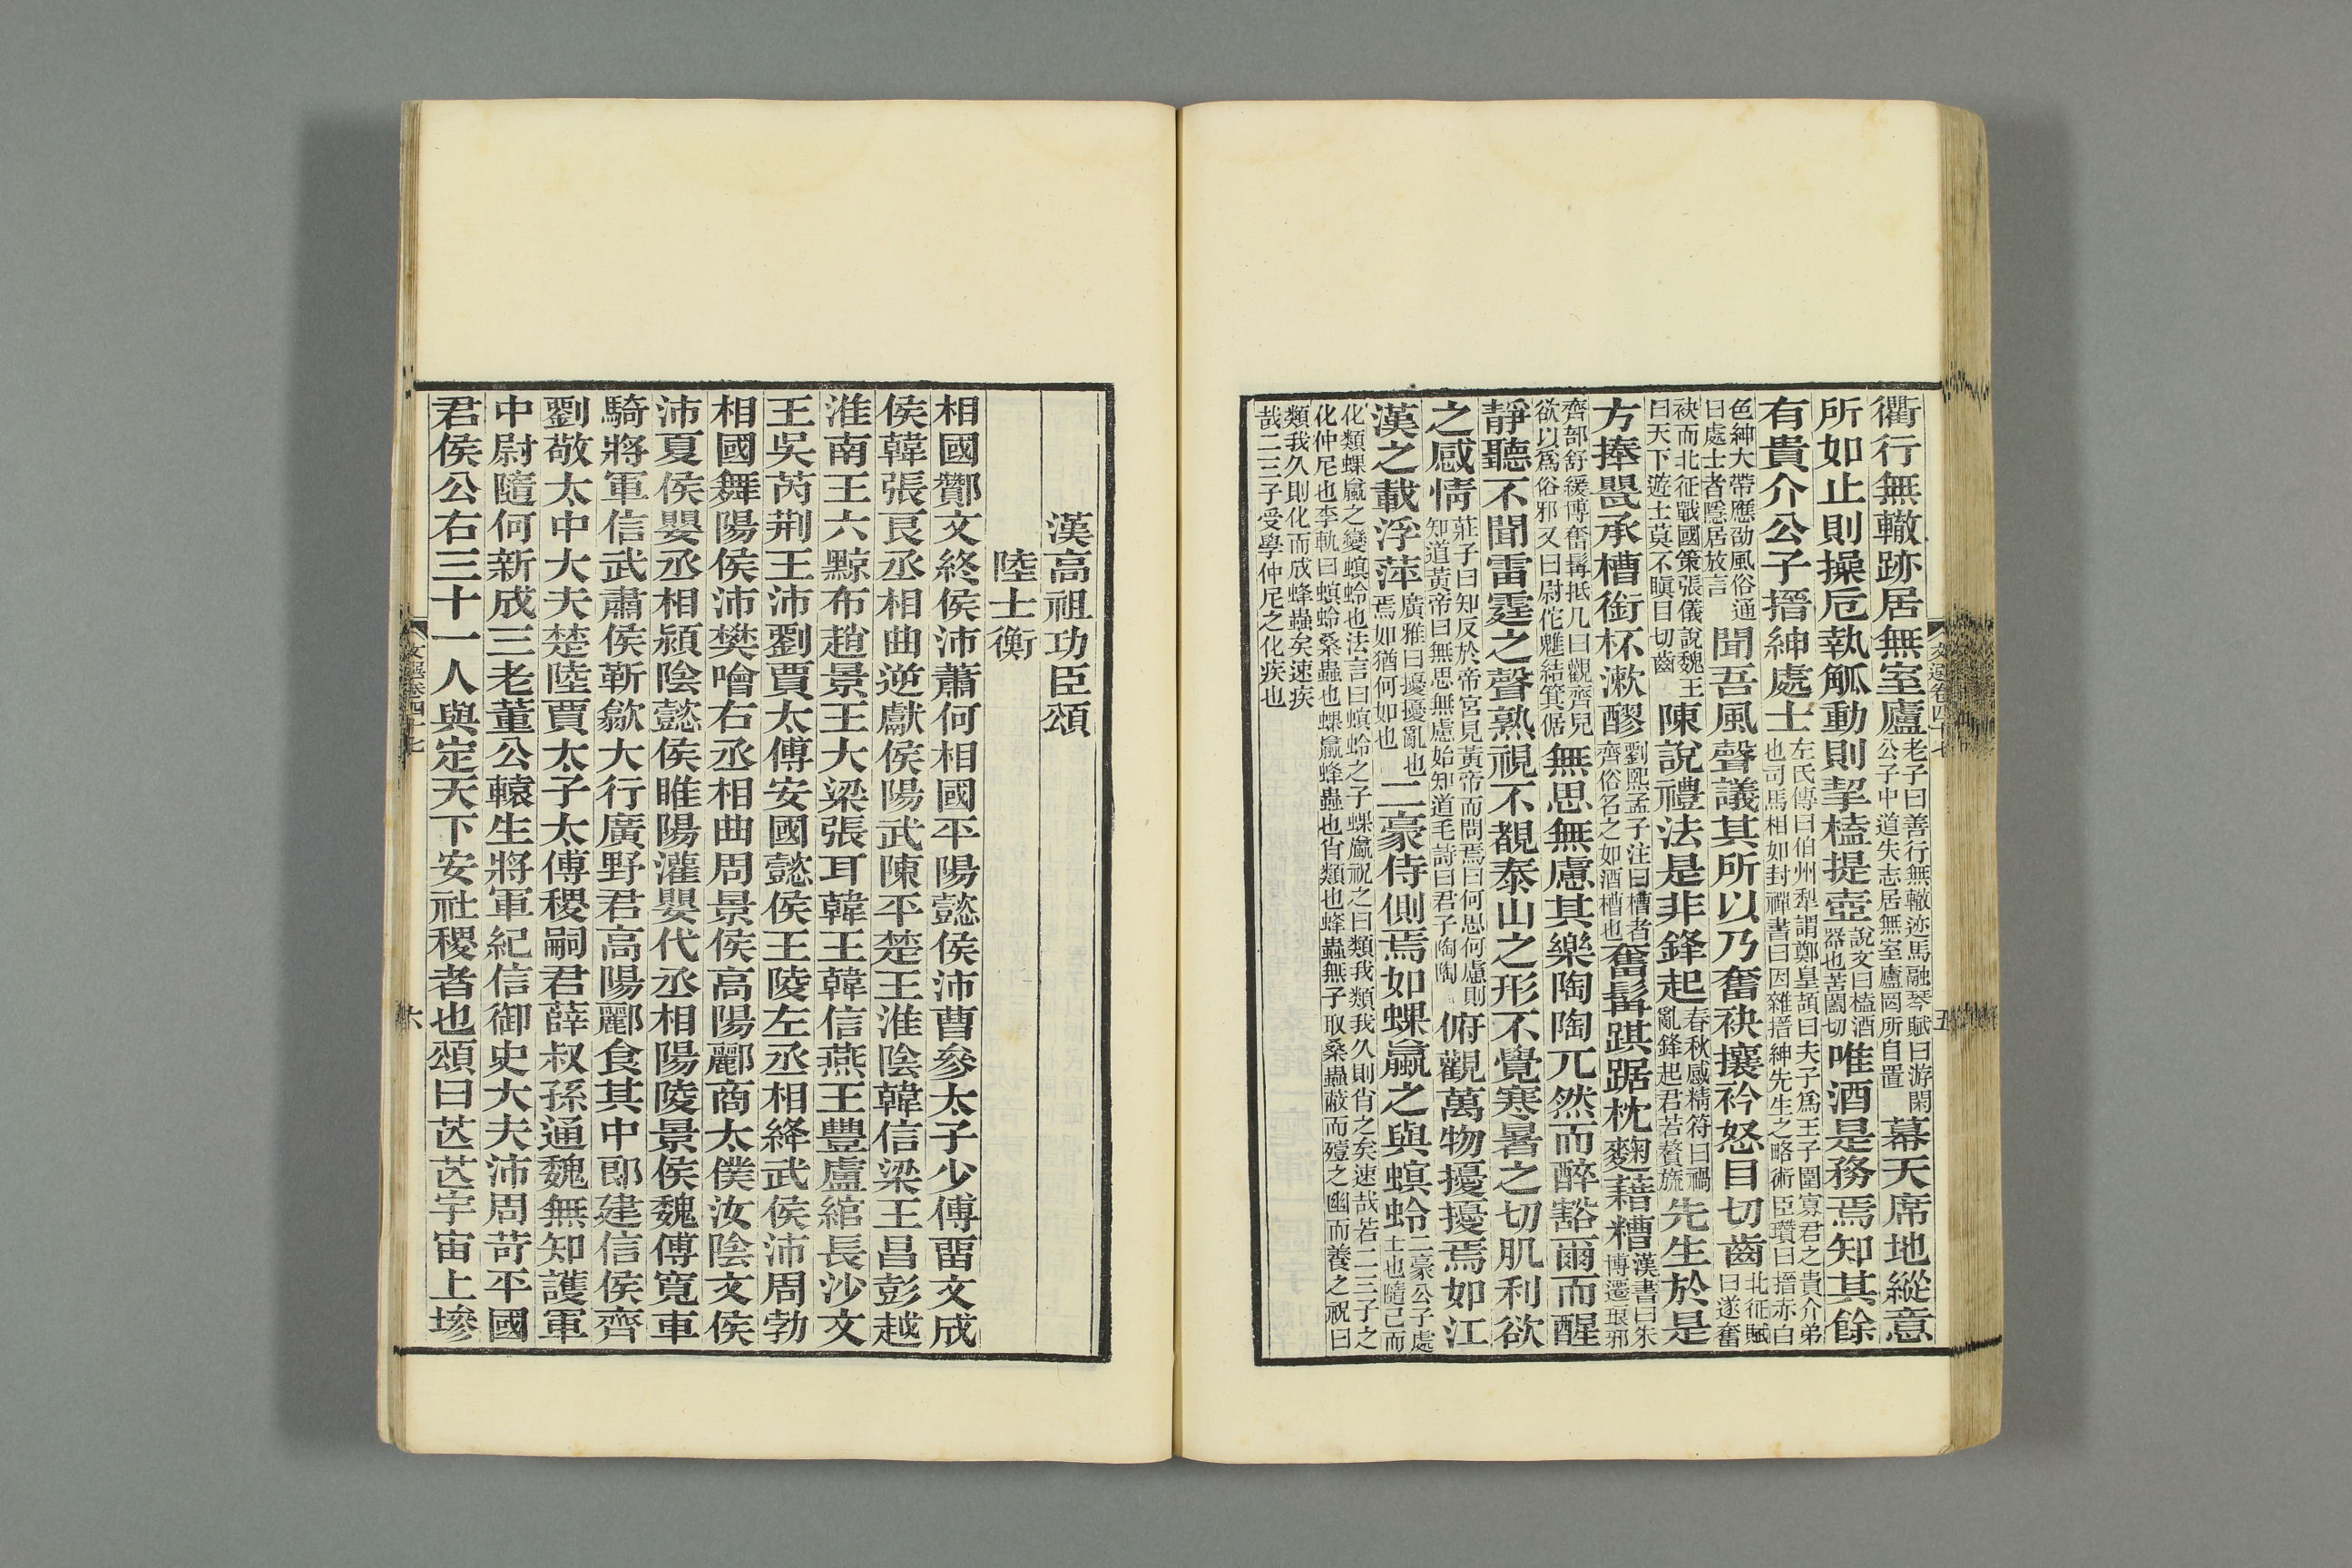 衢行無轍跡居無室廬老子曰善行無轍迹馬融琴賦曰游閑公子中道失志居無室廬罔所自置幕天席地縱意
所如止則操卮執觚動則挈榼提壺說文曰榼酒器也苦闔切唯酒是務焉知其餘
有貴介公子搢紳處士左氏傳曰伯州犁謂鄭皇頡曰夫子為王子圍寡君之貴介弟也司馬相如封禪書曰因雜搢紳先生之略術臣瓚曰搢赤白
色紳大帶應劭風俗通曰處士者隱居放言聞吾風聲議其所以乃奮袂攘衿怒目切齒北征賦曰遂奮
袂而北征戰國策張儀說魏王曰天下遊士莫不瞋目切齒陳說禮法是非鋒起春秋感精符曰禍亂鋒起君若贅旒先生於是
方捧甖承槽銜杯漱醪劉熙孟子注曰槽者齊俗名之如酒槽也奮髯踑踞枕麴藉糟漢書曰朱博遷琅邪
齊部舒緩博奮髯抵几曰觀齊兒欲以為俗邪又曰尉佗魋結箕倨無思無慮其樂陶陶兀然而醉豁爾而醒
靜聽不聞雷霆之聲熟視不覩泰山之形不覺寒暑之切肌利欲
之感情莊子曰知反於帝宮見黃帝而問焉曰何思何慮則知道黃帝曰無思無慮始知道毛詩曰君子陶陶俯觀萬物擾擾焉如江
漢之載浮萍廣雅曰擾擾亂也焉如猶何如也二豪侍側焉如蜾蠃之與螟蛉二豪公子處士也隨己而
化類蜾蠃之變螟蛉也法言曰螟蛉之子蜾蠃祝之曰類我類我久則肖之矣速哉若二三子之化仲尼也李軌曰螟蛉桑蟲也蜾蠃蜂蟲也肖類也蜂蟲無子取桑蟲蔽而殪之幽而養之祝曰
類我久則化而成蜂蟲矣速疾哉二三子受學仲尼之化疾也
文選卷四十七
五
漢高祖功臣頌
陸士衡
相國酇文終侯沛蕭何相國平陽懿侯沛曹參太子少傅留文成
侯韓張良丞相曲逆獻侯陽武陳平楚王淮陰韓信梁王昌彭越
淮南王六黥布趙景王大梁張耳韓王韓信燕王豐盧綰長沙文
王吳芮荆王沛劉賈太傅安國懿侯王陵左丞相絳武侯沛周勃
相國舞陽侯沛樊噲右丞相曲周景侯高陽酈商太僕汝陰文侯
沛夏侯嬰丞相潁陰懿侯睢陽灌嬰代丞相陽陵景侯魏傅寬車
騎將軍信武肅侯靳歙大行廣野君高陽酈食其中郎建信侯齊
劉敬太中大夫楚陸賈太子太傅稷嗣君薛叔孫通魏無知護軍
中尉隨何新成三老董公轅生將軍紀信御史大夫沛周苛平國
君侯公右三十一人與定天下安社稷者也頌曰芒芒宇宙上墋
文選卷四十七
六